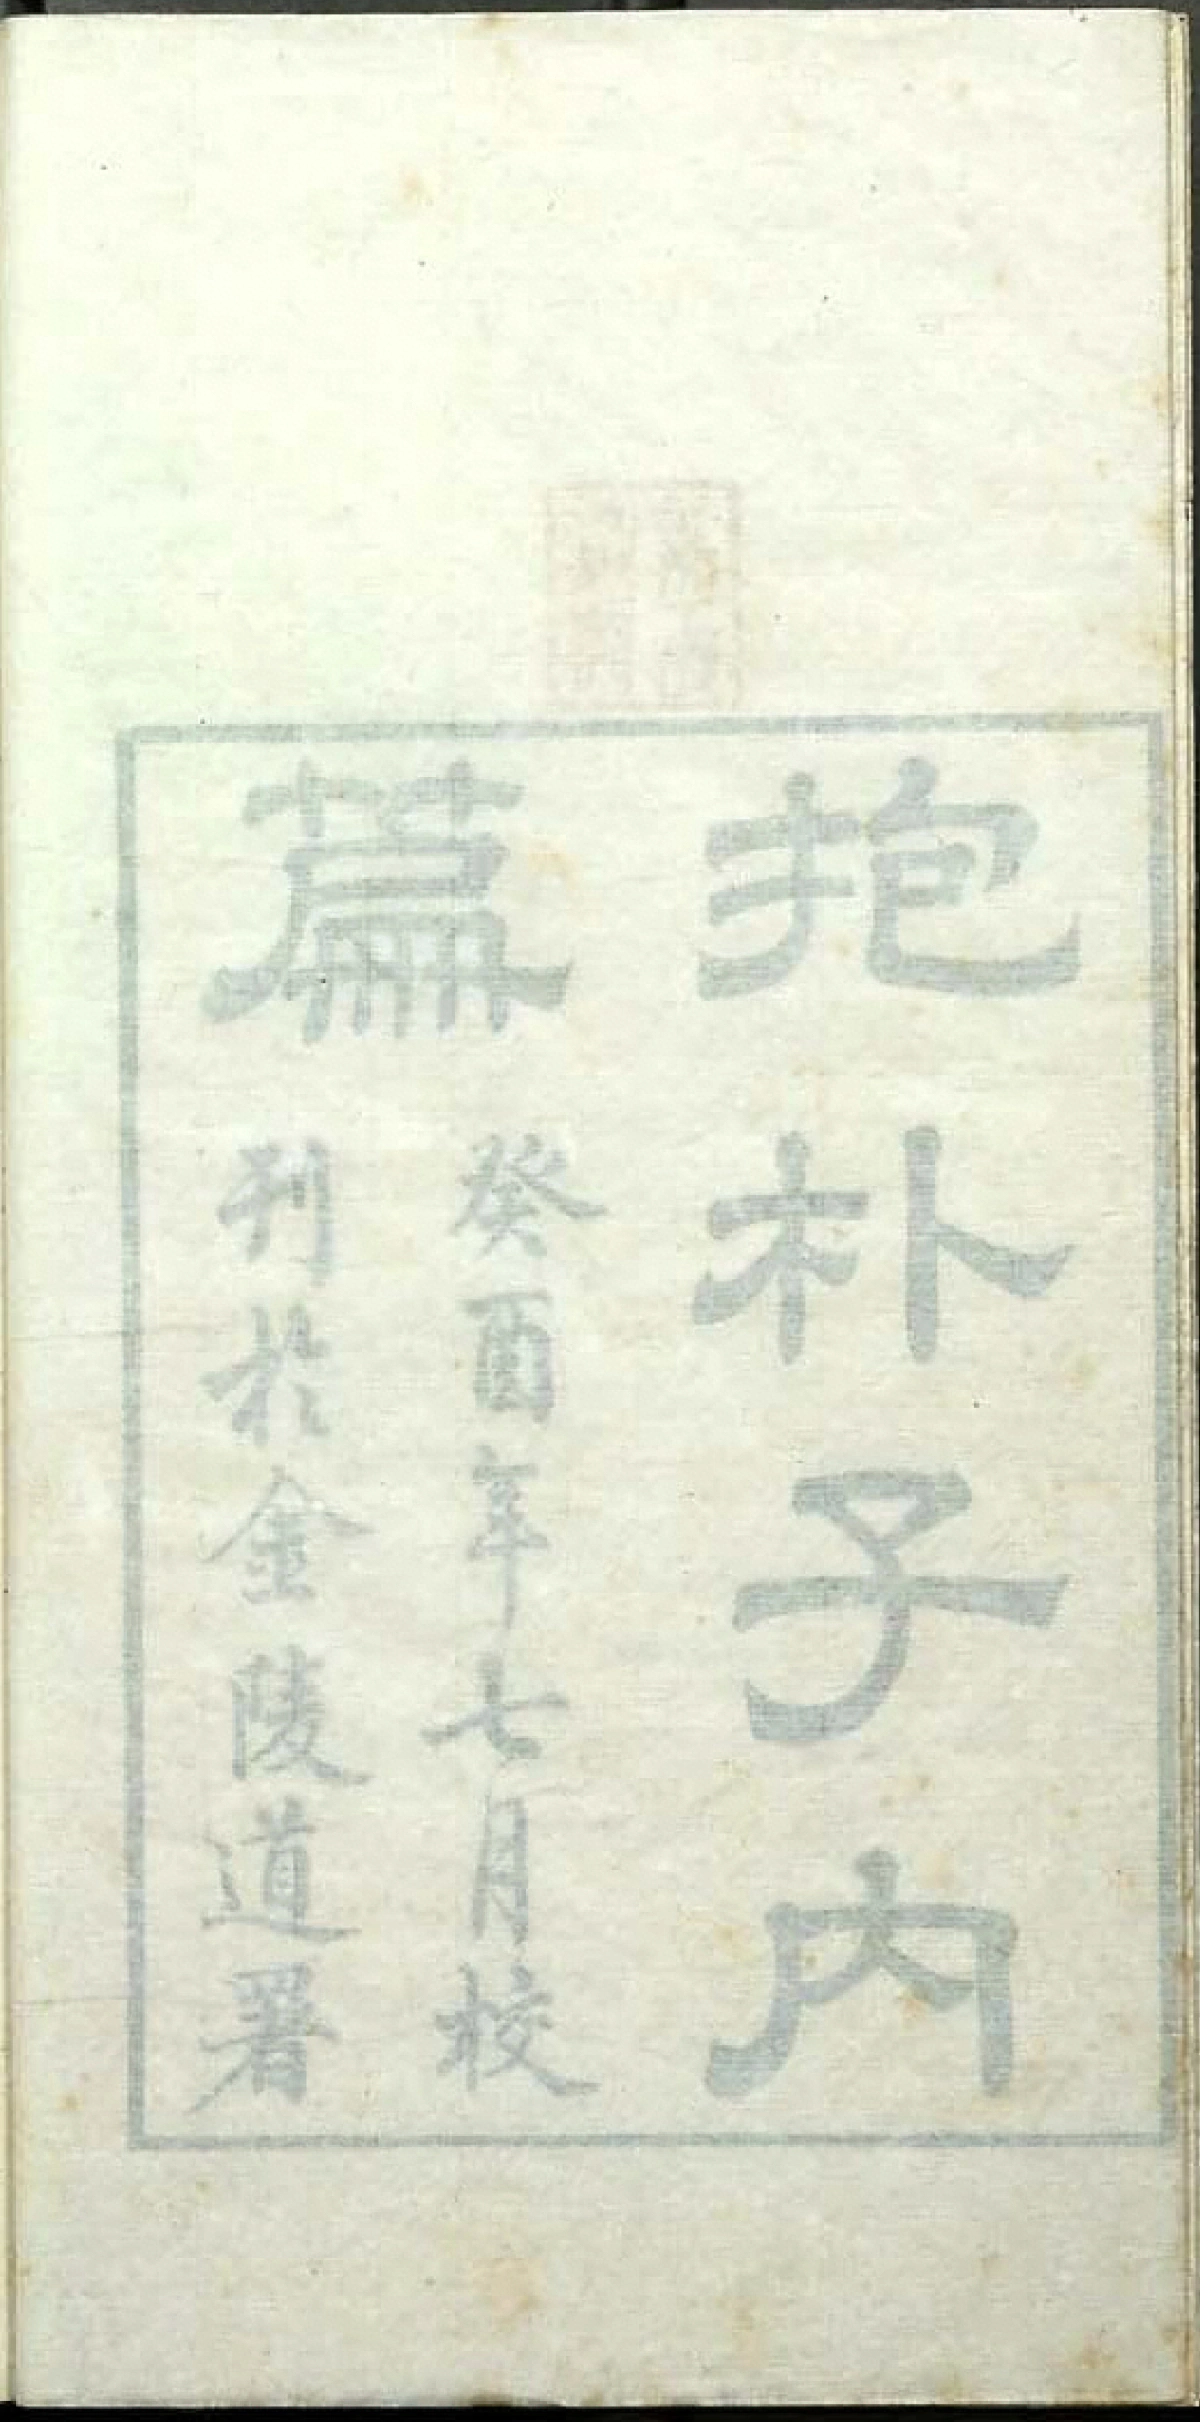 抱朴子內
篇
癸酉年七月校
刊於金陵道署